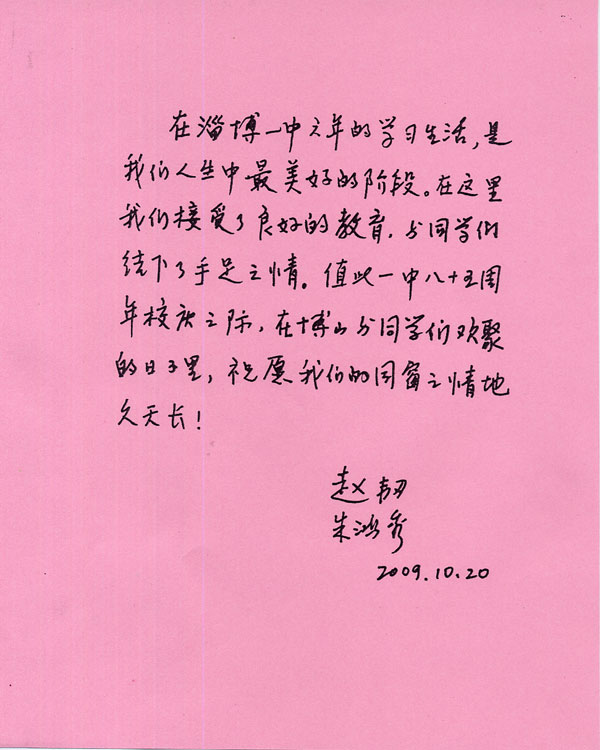 在淄博一中六年的学习生活,是
我们人生中最美好的阶段。在这里
我们接受了良好的教育,与同学们
结下了手足之情。值此一中八十五周
年校庆之际,在博山与同学们欢聚
的日子里,祝愿我们的同窗之情地
久天长!
赵韧
朱鸿秀
2009.10.20